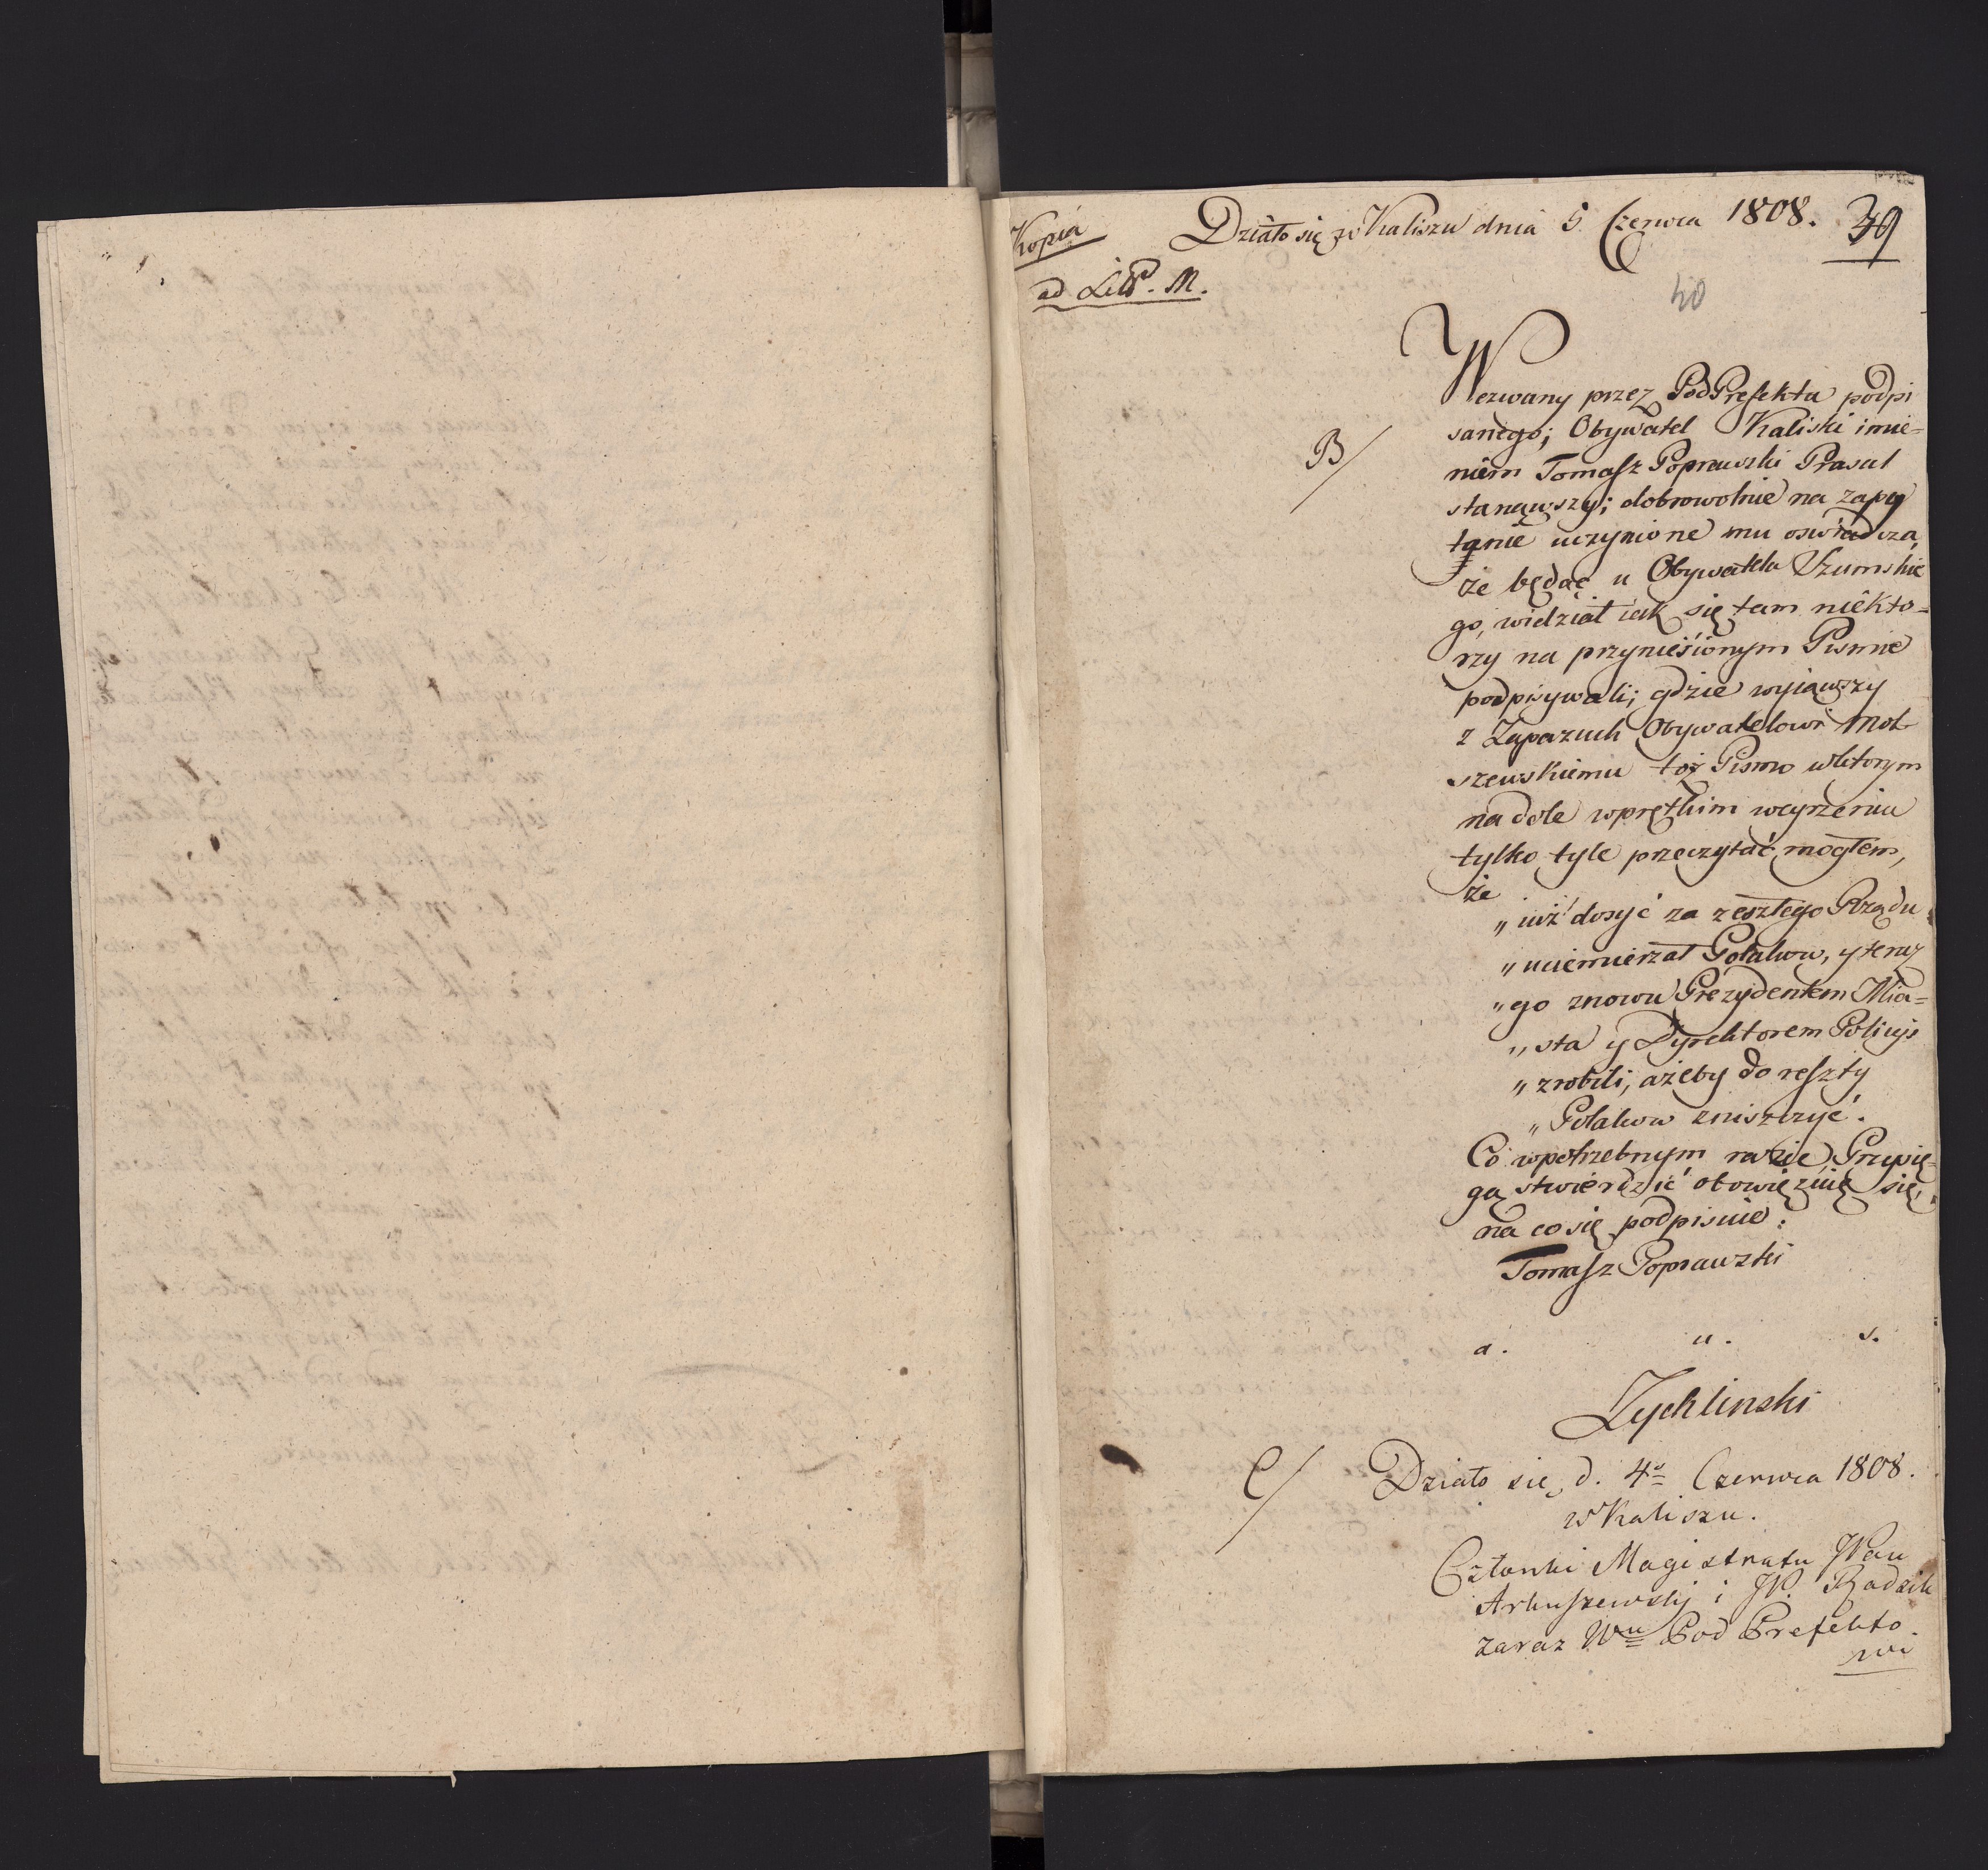 Kopia
Działo się w Kaliszu dnia 5 Czerwca 1808.
39
ad Litt. M.
40
Wezwany przez PodPrefekta podpi
B/
sanego; Obywatel Kaliski imie=
niem Tomasz Poprawski
stanąwszy; dobrowolnie na zapy
tanie uczynione mu oswiadcza,
że będąc u Obywatela Szumskie
go, widział iak się tam niekto=
rzy na przyniesionym Pismie
podpisywali; gdzie wyiąwszy
z Zapazuch Obywatelowi Mol
szewskiemu toż Pismo wktorym
na dole wprętkim weyrzeniu
tylko tyle przeczytać mogłem,
że
„ iuż dosyć za zeszłego Rządu
„ uciemierzał Polakow, y teraz
„ go znowu Prezydentem Mia=
„ sta y Dyrektorem Policyi
„ zrobili, ażeby do reszty
„ Polakow zniszczyć.
Co wpotrzebnym razie Przysię=
gą stwierdzić obowięzuię się,
na co się podpisuie:
Tomasz Poprawski
a. u. s.
Zychlinski
C/
Działo się d. 4º Czerwca 1808.
w Kaliszu.
Członki Magistratu JPan
Arkuszewskj i JP. Radzik
zaraz Wu Pod Prefekto
wi